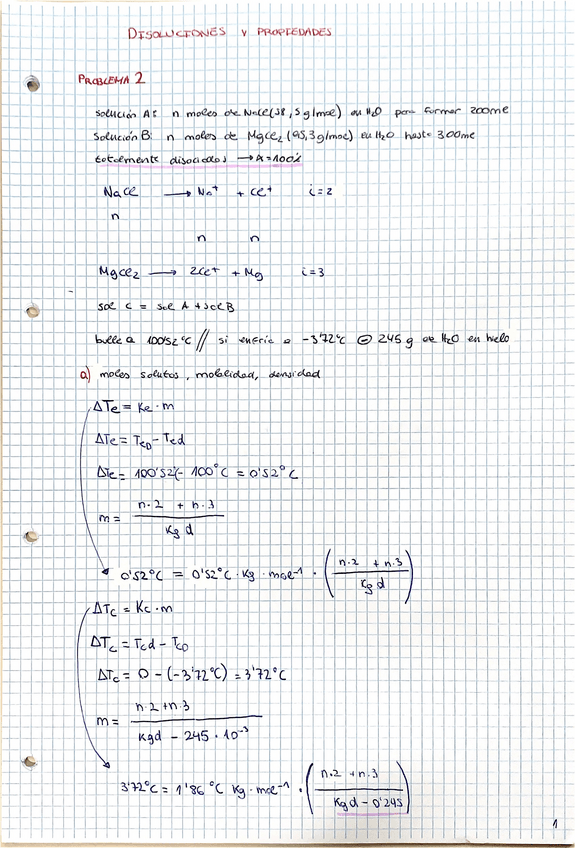 DISOLUCIONES Y PROPIEDADES
PROBLEMA 2
Solución A: n moles de NaCl (58,5 g/mol) en H₂O para formar 200ml
Solución B: n moles de MgCl₂ (95,3 g/mol) en H₂O hasta 300ml
totalmente disociados → α=100%
NaCl → Na⁺ + Cl⁺ i=2
n
n n
MgCl₂ → 2Cl⁺ + Mg i=3
sol C = sol A + sol B
bulle a 100'52°C // si enfría a -3'72°C ⊖ 245 g de H₂O en hielo
a) moles solutos, molalidad, densidad
ΔTe = Ke · m
ΔTe = Teo - Ted
ΔTe = 100'52°C - 100°C = 0'52°C
m = n·2 + n·3 / Kg d
0'52°C = 0'52°C · Kg · mol⁻¹ · (n·2 + n·3 / Kg d)
ΔTc = Kc · m
ΔTc = Tcd - Tco
ΔTc = 0 - (-3'72°C) = 3'72°C
m = n·2 + n·3 / Kgd - 245 · 10⁻³
3'72°C = 1'86 °C Kg · mol⁻¹ · (n·2 + n·3 / Kgd - 0'245)
1